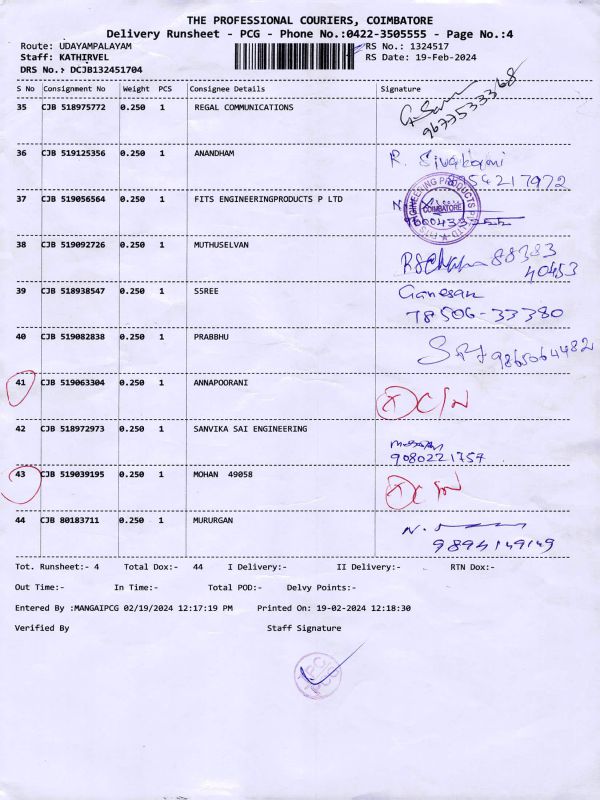 THE PROFESSIONAL COURIERS, COIMBATORE
Delivery Runsheet - PCG - Phone No.:0422-3505555 - Page No.:4
Route: UDAYAMPALAYAM RS No.: 1324517
Staff: KATHIRVEL RS Date: 19-Feb-2024
DRS No.: DCJB132451704
S No Consignment No Weight PCS Consignee Details Signature
35 CJB 518975772 0.250 1 REGAL COMMUNICATIONS
9677533368
36 CJB 519125356 0.250 1 ANANDHAM R. Sivakami
8954217972
37 CJB 519056564 0.250 1 FITS ENGINEERINGPRODUCTS P LTD
COIMBATORE
38 CJB 519092726 0.250 1 MUTHUSELVAN 88383
40453
39 CJB 518938547 0.250 1 SSREE Ganesan
78506-33380
40 CJB 519082838 0.250 1 PRABBHU 9865064482
41 CJB 519063304 0.250 1 ANNAPOORANI C/N
42 CJB 518972973 0.250 1 SANVIKA SAI ENGINEERING
9080221754
43 CJB 519039195 0.250 1 MOHAN 49058 C/N
44 CJB 80183711 0.250 1 MURURGAN N.
9894149149
Tot. Runsheet:- 4 Total Dox:- 44 I Delivery:- II Delivery:- RTN Dox:-
Out Time:- In Time:- Total POD:- Delvy Points:-
Entered By :MANGAIPCG 02/19/2024 12:17:19 PM Printed On: 19-02-2024 12:18:30
Verified By Staff Signature